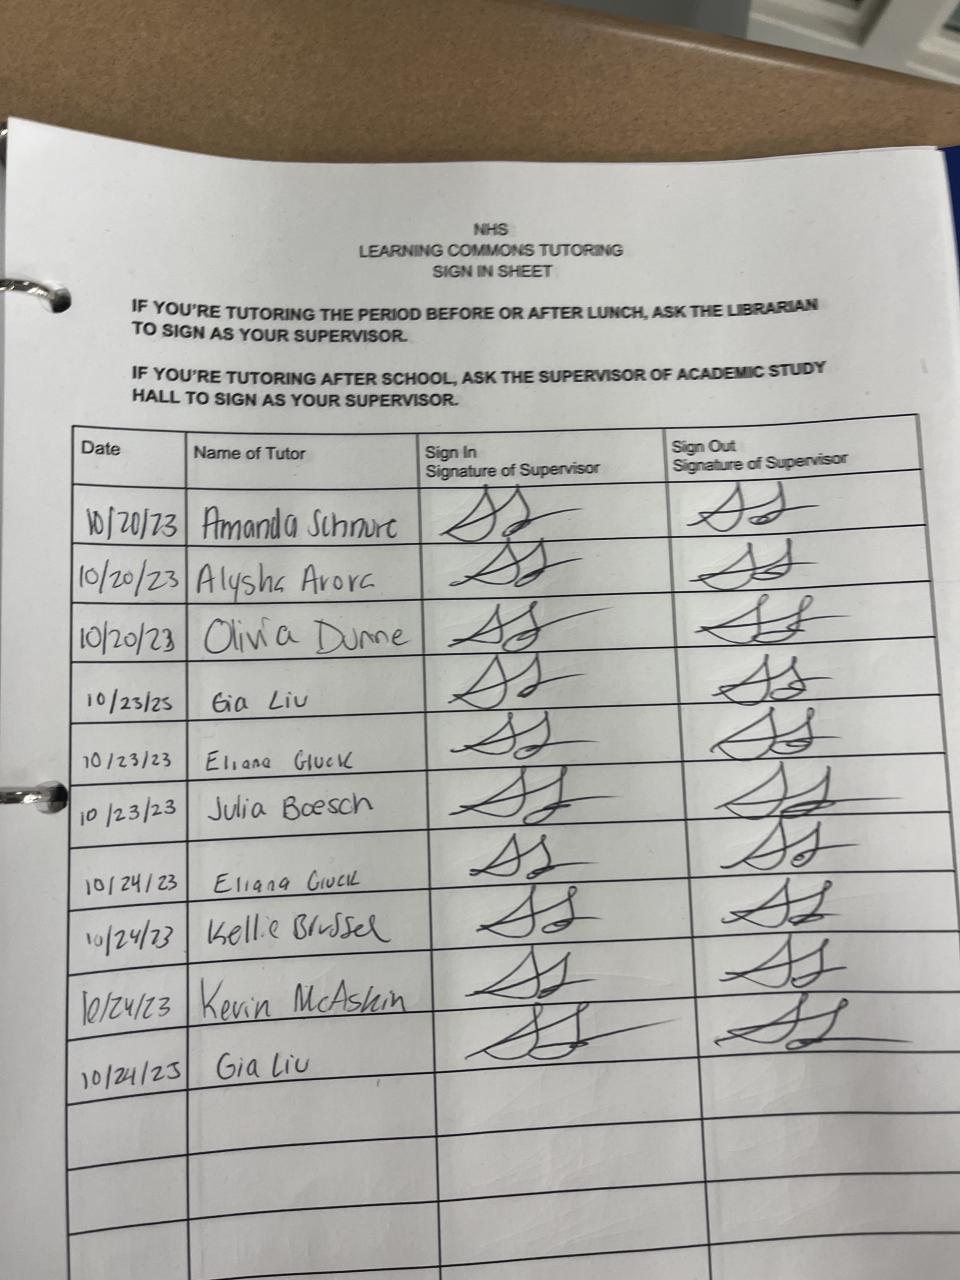 NHS
LEARNING COMMONS TUTORING
SIGN IN SHEET
IF YOU'RE TUTORING THE PERIOD BEFORE OR AFTER LUNCH, ASK THE LIBRARIAN
TO SIGN AS YOUR SUPERVISOR.
IF YOU'RE TUTORING AFTER SCHOOL, ASK THE SUPERVISOR OF ACADEMIC STUDY
HALL TO SIGN AS YOUR SUPERVISOR.
Date Name of Tutor Sign In Sign Out
Signature of Supervisor Signature of Supervisor
10/20/23 Amanda Schnurc
10/20/23 Alysha Arora
10/20/23 Olivia Dunne
10/23/23 Gia Liu
10/23/23 Eliana Gluck
10/23/23 Julia Boesch
10/24/23 Eliana Gluck
10/24/23 Kellie Brussel
10/24/23 Kevin McAskin
10/24/23 Gia Liu